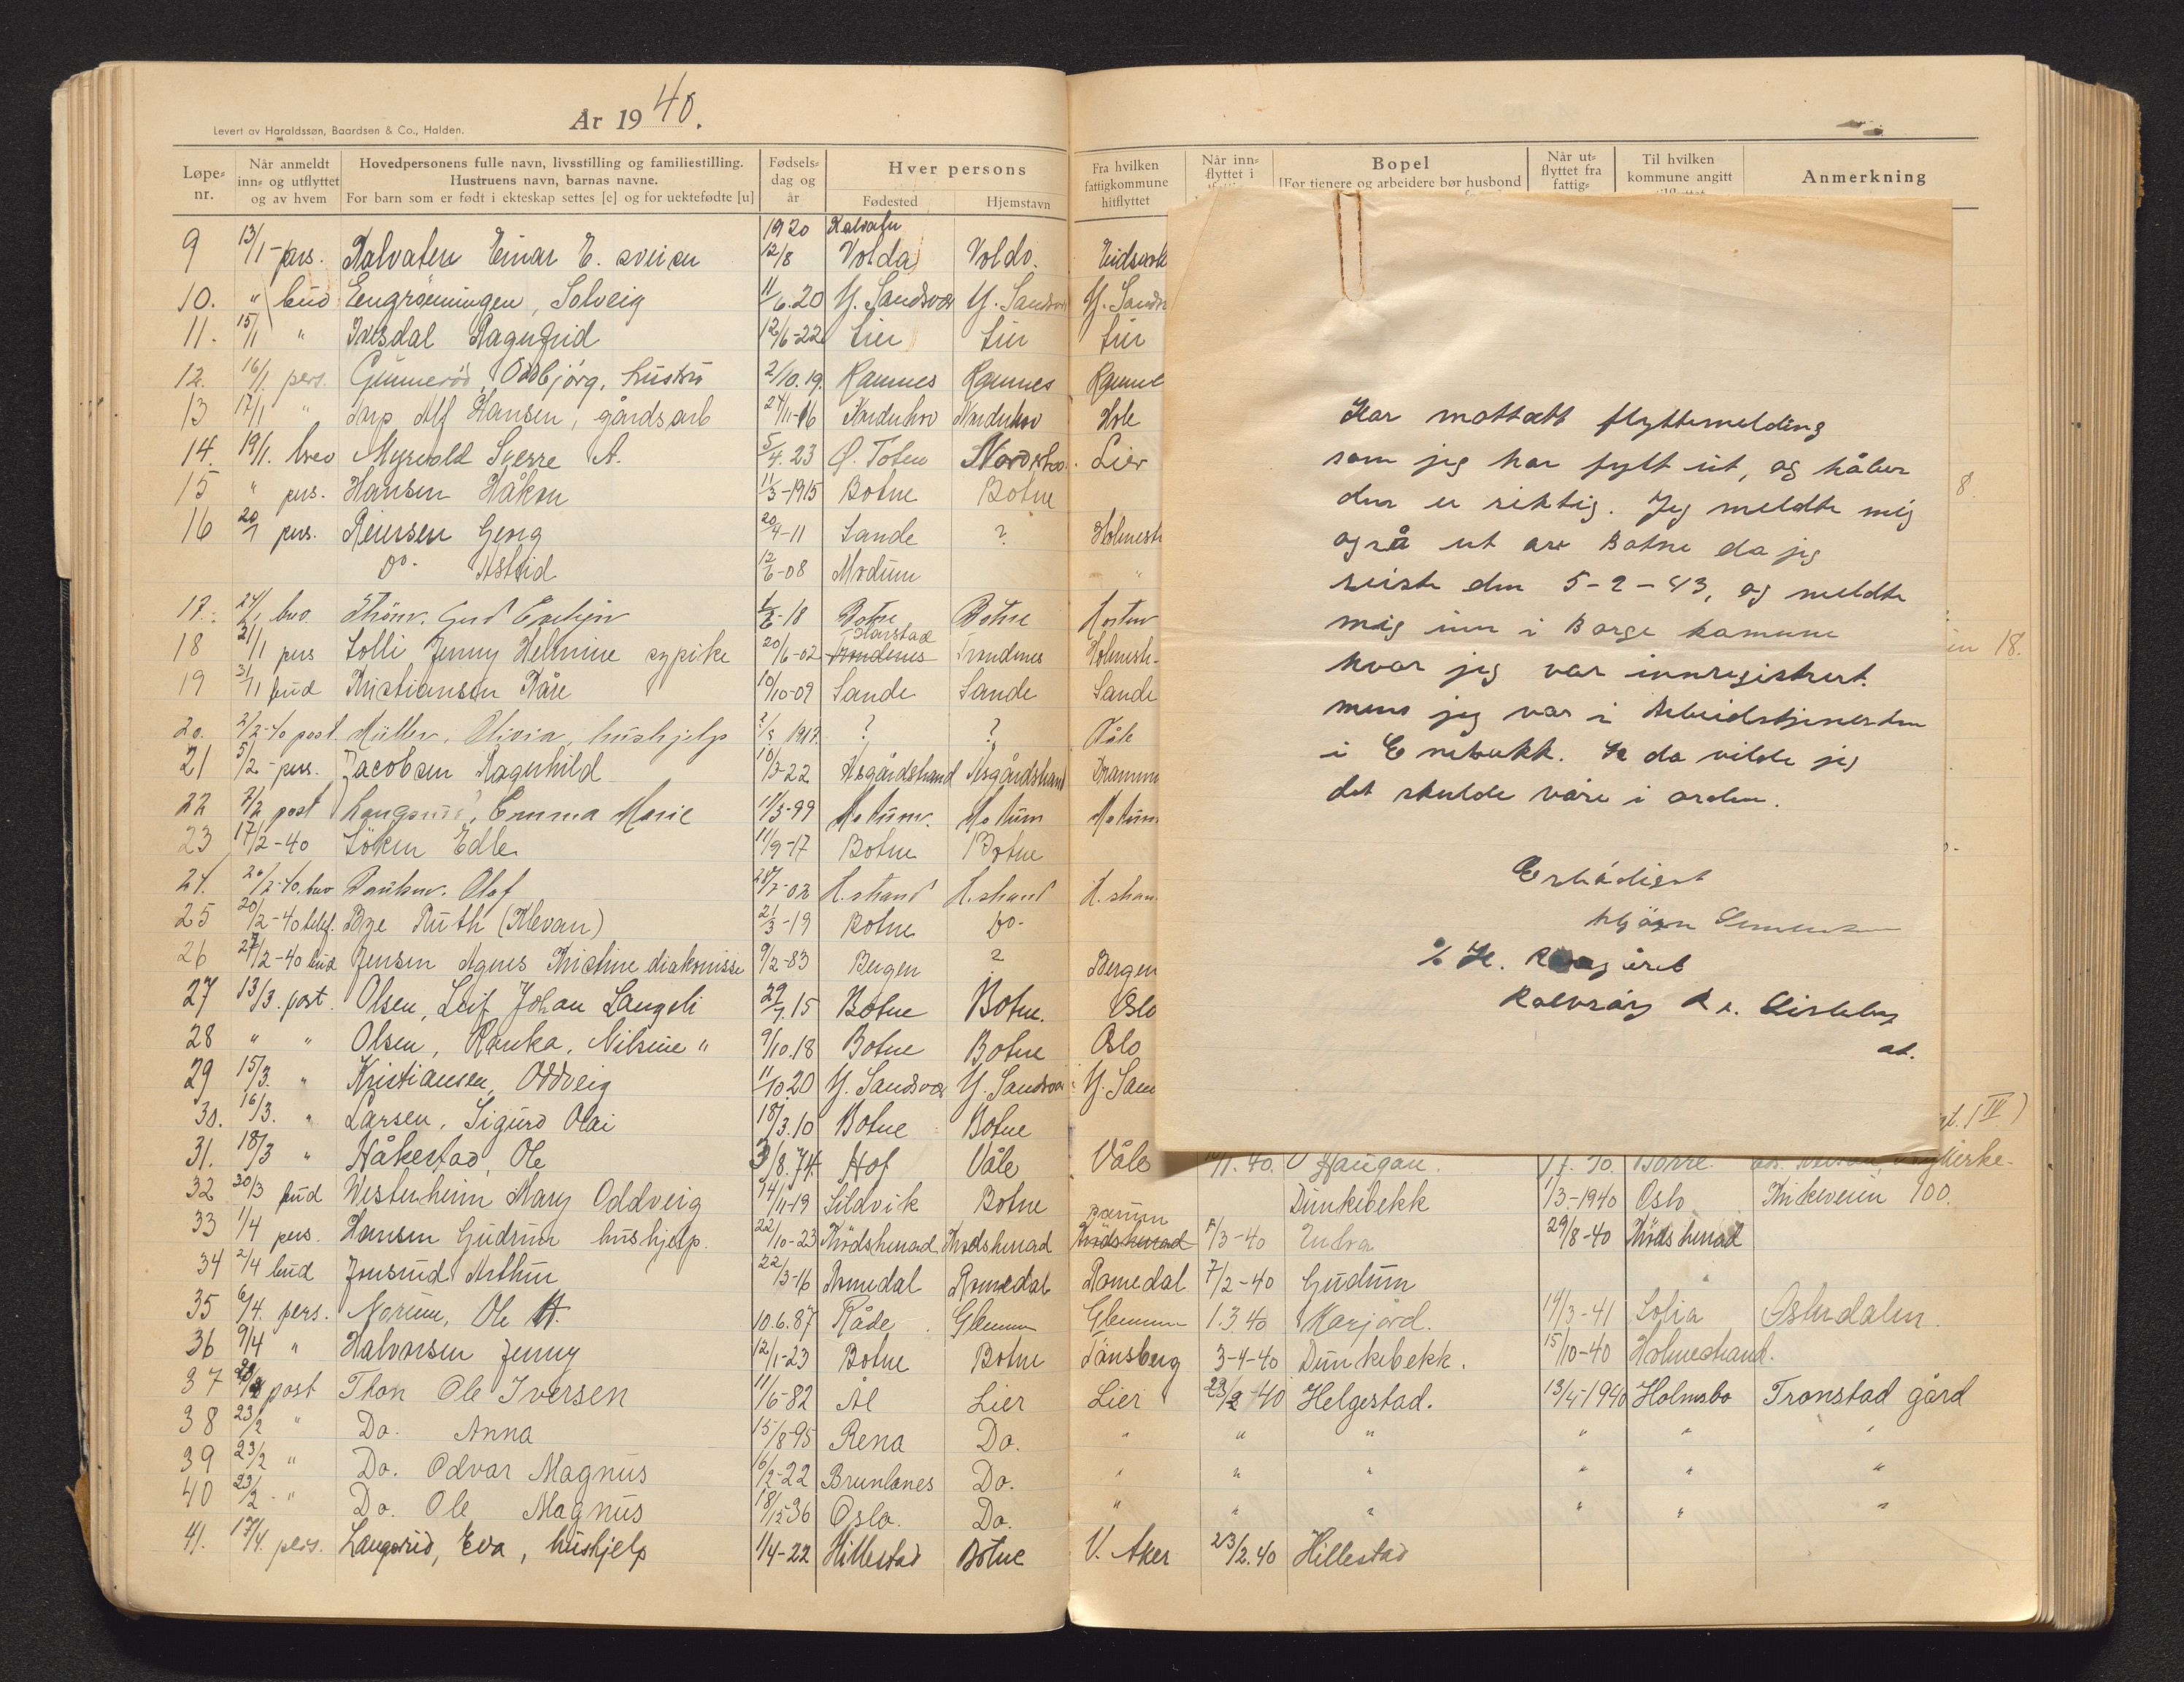 År 1940.
Levert av Haraldssøn, Baardsen & Co., Halden.
Løpe-nr. Når anmeldt inn- og utflyttet og av hvem Hovedpersonens fulle navn, livsstilling og familiestilling. Hustruens navn, barnas navne. For barn som er født i ekteskap settes [e] og for uektefødte [u] Fødselsdag og år Hver persons Fødested Hjemstavn
Fra hvilken fattigkommune hitflyttet Når innflyttet i Bopel [For tjenere og arbeidere bør husbond Når utflyttet fra fattig- Til hvilken kommune angitt Anmerkning
9 13/1 - pers. Kalvatn Einar E. sveiser 1920 12/8 Kalvatn Volda Volda
10. " bud Engrønningen, Solveig 11/6.20 Y. Sandsvær Y. Sandsv Y. Sands
11. 15/1 " Ivesdal Ragnfrid 12/6-22 Lier Lier Lier
12. 16/1 pers. Gunnerød, Oddbjørg, hustru 2/10.19. Ramnes Ramnes Ramne
13 17/1 " Alf Hansen, gårdsarb 24/11-16 Norderhov Norderhov Hole
14. 19/1. brev Myrvold Sverre A. 5/4.23 Ø. Toten Norderhov. Lier
15 " pers. Hansen Håkon 11/3-1915 Botne Botne
16 20/1 pers. Reiersen Georg 20/4-11 Sande ? Holmestr
Do. Astrid 12/6-08 Modum "
17. 24/1 brev. Gerd -18 Botne Botne
18 21/1 pers Solli Jenny Helmine sypike 20/6-02 Harstad Trondenes Trondenes Holmestr.
19 31/1 bud Kristiansen Kåre 10/10-09 Sande Sande Sande
20. 2/2-40 post Müller, Olivia, hushjelp 1917. ? ? Våle
21 5/2 - pers. Jacobsen Ragnhild 10/3-22 Åsgårdstrand Åsgårdstrand Dramm
22 7/2 post Langsrud, Emma Marie 11/3-99 Modum. Modum Modum
23 17/2-40 Søken Edle 11/9-17 Botne Botne
24. 20/2-40. brev Olaf -02 H.strand H.strand H.stran
25 20/2-40 telef. Bye Ruth (Klevan) 21/3-19 Botne Do.
26 27/2-40 bud Jensen Agnes Kristine diakonisse 9/2-83 Bergen ? Bergen
27 13/3. post. Olsen, Leif Johan Langeli 29/7.15 Botne Botne. Oslo
28 " " Olsen, Ranka, Nilsine " 9/10.18 Botne Botne Oslo
29 15/3. " Kristiansen, Oddveig 11/10.20 Y. Sandsvær Y. Sandsvær Y. San
30. 16/3. " Larsen, Sigurd Olai 18/3.10 Botne Botne
31. 18/3 " Håkestad, Ole 3/8.74. Hof Våle Våle 11.40. Haugan. Borre.
32 30/3 bud Westerheim Mary Oddveig 14/11-19 Sildvik Botne Dunkebekk 1/3-1940 Oslo Kirkeveien 100.
33 1/4 pers. Hansen Gudrun hushjelp. 22/10-23 Krødsherad Krødsherad Bærum Krødsherad 1/3-40 Endra 29/8-40 Krødsherad
34 2/4 bud Jonsrud Arthur 22/3-16 Romedal Romedal Romedal 7/2-40 Gudum
35 6/4. pers. Norum, Ole A. 10.6.87 Råde Glemmen Glemmen 1.3.40 Marjord. 14/3-41 Sollia Østerdalen.
36 9/4 " Halvorsen Jenny 12/1-23 Botne Botne Tønsberg 3-4-40 Dunkebekk. 15/10-40 Holmestrand.
37 23/2 post Thon Ole Iversen 11/6-82 Ål Lier Lier 23/2 40 Helgestad. 13/4-1940 Holmsbo Tronstad gård
38 23/2 " Do. Anna 15/8-95 Rena Do. " " " " " "
39 23/2 " Do. Odvar Magnus 16/2-22 Brunlanes Do. " " " " " "
40 23/2 - " Do. Ole Magnus 18/12 36 Oslo. Do. " " " " " "
41. 17/4. pers. Langsrud, Eva, hushjelp 1/4-22 Hillestad Botne V. Aker 23/2.40 Hillestad
Har mottatt flyttemelding
som jeg har fylt ut, og håber
den er riktig. Jeg meldte mig
også ut av Botne da jeg
reiste den 5-2-43, og meldte
mig inn i Borge komune
hvor jeg var innregistrert.
mens jeg var i Arbeidstjenesten
i Enebakk. Så da vilde jeg
det skulde være i orden.
Erbødigst
Bjørn
℅ H.
Kalvsrøg
8.
in 18.